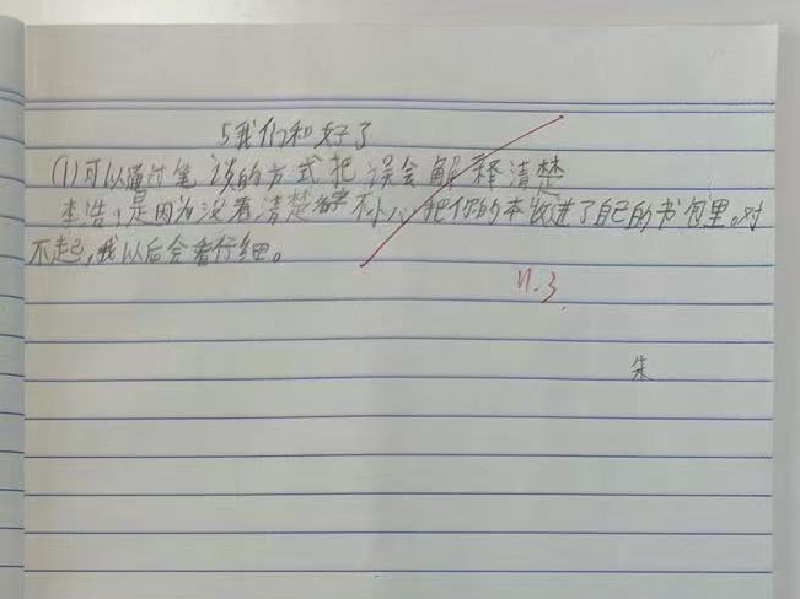 5我们和好了
(1)可以通过笔谈的方式把误会解释清楚
李浩,是因为没看清楚 不小心把你的本收进了自己的书包里。对
不起,我以后会看仔细。
11.3
朱